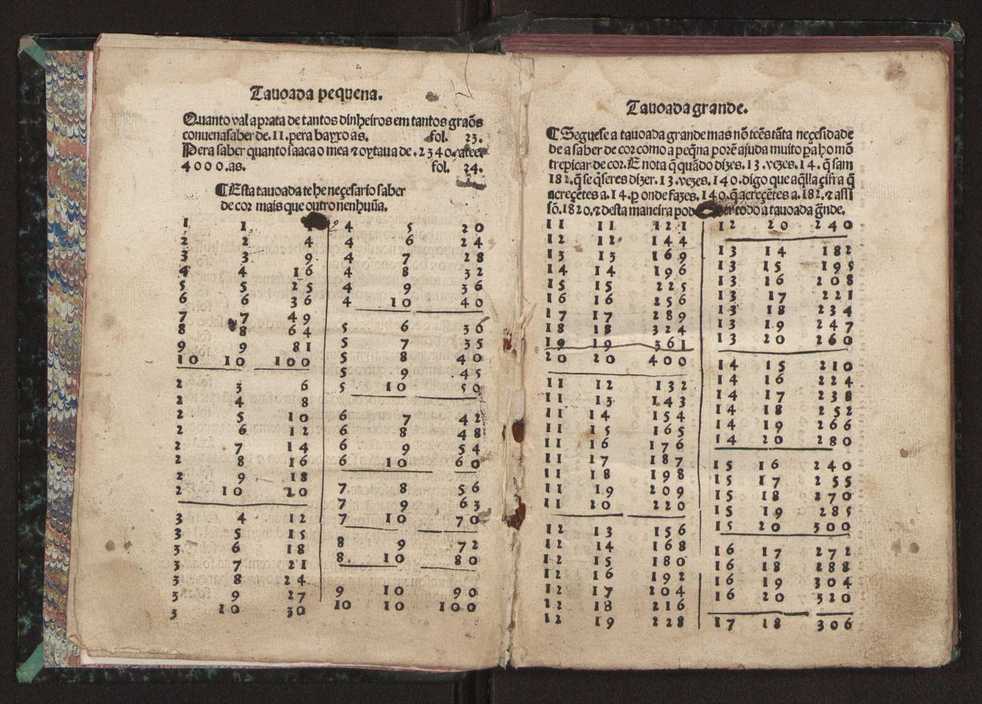 Tauoada pequena.
Quanto val a prata de tantos dinheiros em tantos graõs
conuenasaber de.11.pera bayxo as. fol. 23.
Pera saber quanto saae ao mea & oytaua de .2340.
4000.as. fol. 24.
¶Esta tauoada te he neçesario saber
de cor mais que outro nenhuũa.
1 1
2 2 4
3 3 9
4 4 16
5 5 25
6 6 36
7 7 49
8 8 64
9 9 81
10 10 100
2 3 6
2 4 8
2 5 10
2 6 12
2 7 14
2 8 16
2 9 18
2 10 20
3 4 12
3 5 15
3 6 18
3 7 21
3 8 24
3 9 27
3 10 30
4 5 20
4 6 24
4 7 28
4 8 32
4 9 36
4 10 40
5 6 30
5 7 35
5 8 40
5 9 45
5 10 50
6 7 42
6 8 48
6 9 54
6 10 60
7 8 56
7 9 63
7 10 70
8 9 72
8. 10 80
9 10 90
10 10 100
Tauoada grande.
¶Seguese a tauoada grande mas nõ tẽs tãta neçesidade
de a saber de cor como a peq̃na porẽ ajuda muito pa ho mõ
trepicar de cor. E nota q̃ quãdo dizes.13.vezes.14.q̃ sam
182.q̃ se q̃seres dizer.13.vezes.140.digo que aq̃lla çifra q̃
acreçẽtes a.14.p onde fazes.140.q̃ acreçẽtes a.182.& assi
sõ.1820.& desta maneira todo a tauoada g̃nde.
11 11 121
12 12 144
13 13 169
14 14 196
15 15 225
16 16 256
17 17 289
18 18 324
19 19 361
20 20 400
11 12 132
11 13 143
11 14 154
11 15 165
11 16 176
11 17 187
11 18 198
11 19 209
11 20 220
12 13 156
12 14 168
12 15 180
12 16 192
12 17 204
12 18 216
12 19 228
12 20 240
13 14 182
13 15 195
13 16 208
13 17 221
13 18 234
13 19 247
13 20 260
14 15 210
14 16 224
14 17 238
14 18 252
14 19 266
14 20 280
15 16 240
15 17 255
15 18 270
15 19 285
15 20 300
16 17 272
16 18 288
16 19 304
16 20 320
17 18 306